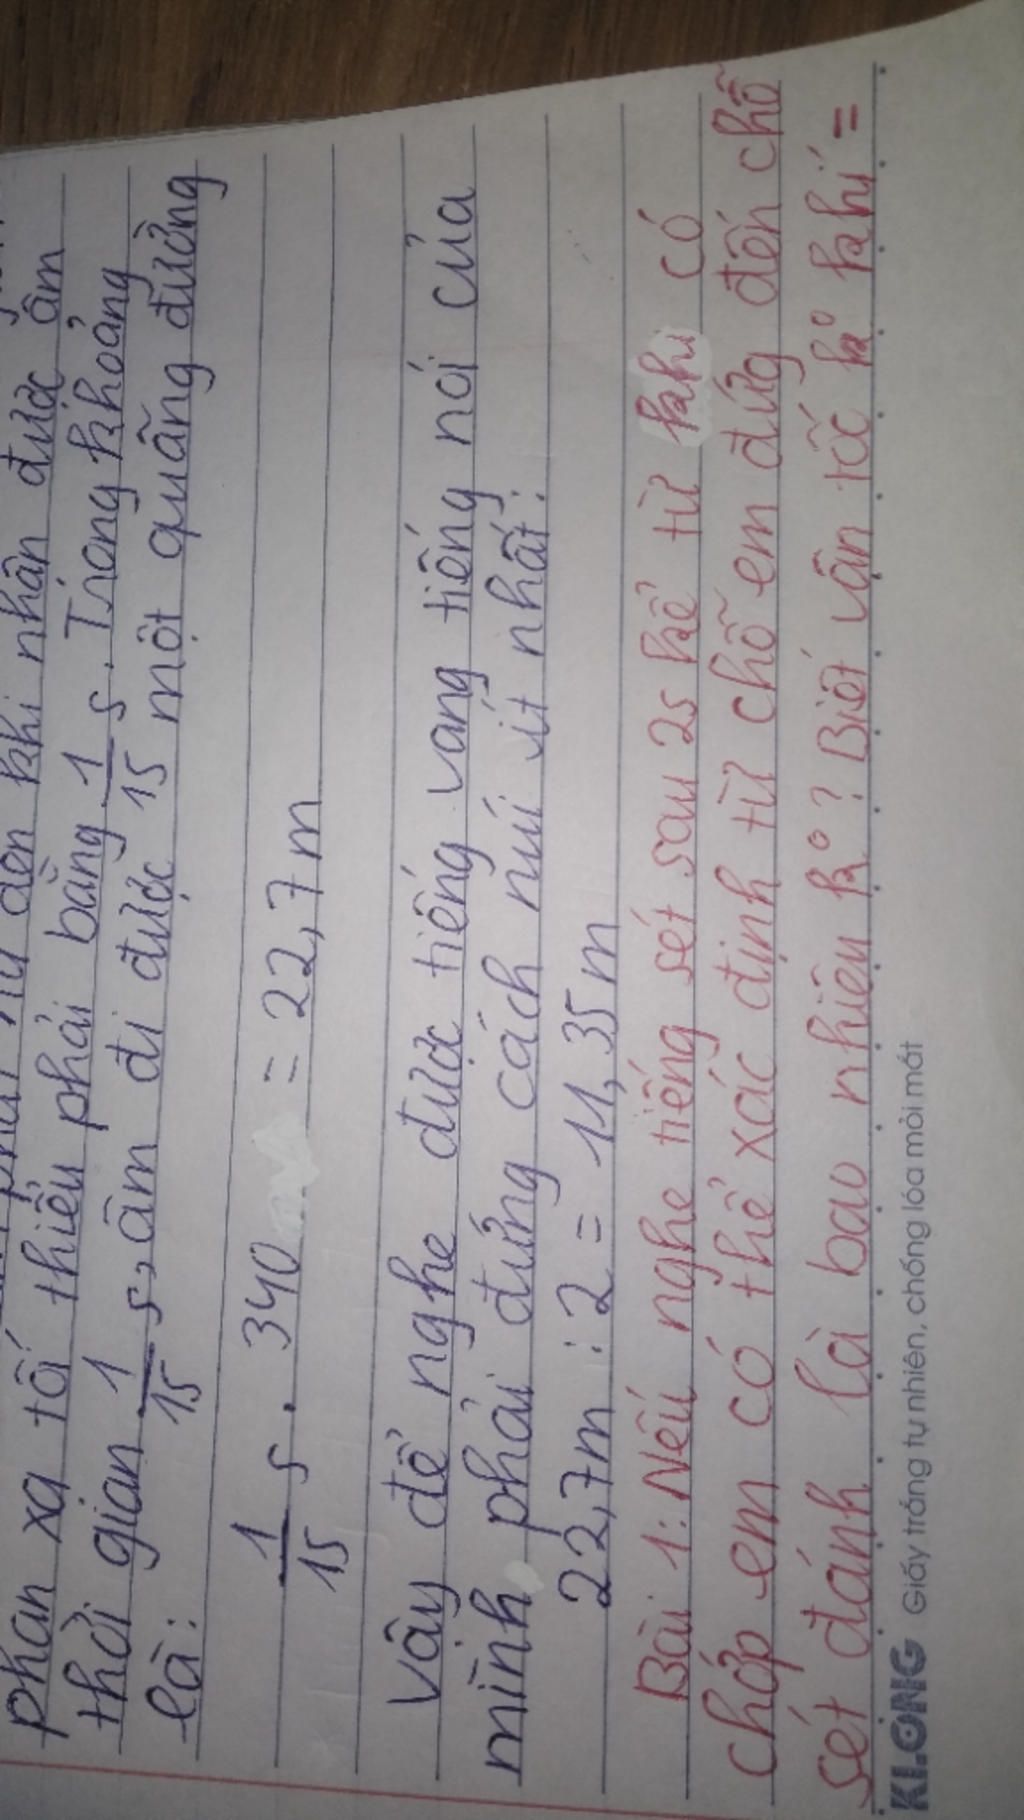 phản xạ tối thiểu phải bằng 1/15 s. Trong khoảng
thời gian 1/15 s, âm đi được một quãng đường
là:
1/15 s . 340 = 22,7m
Vậy để nghe được tiếng vang tiếng nói của
mình phải đứng cách núi ít nhất:
22,7m : 2 = 11,35m
Bài 1: Nếu nghe tiếng sét sau 2s kể từ khi có
chớp em có thể xác định từ chỗ em đứng đến chỗ
sét đánh là bao nhiêu k° ? Biết vận tốc k° khí =
KLONG Giấy trắng tự nhiên, chống lóa mỏi mắt